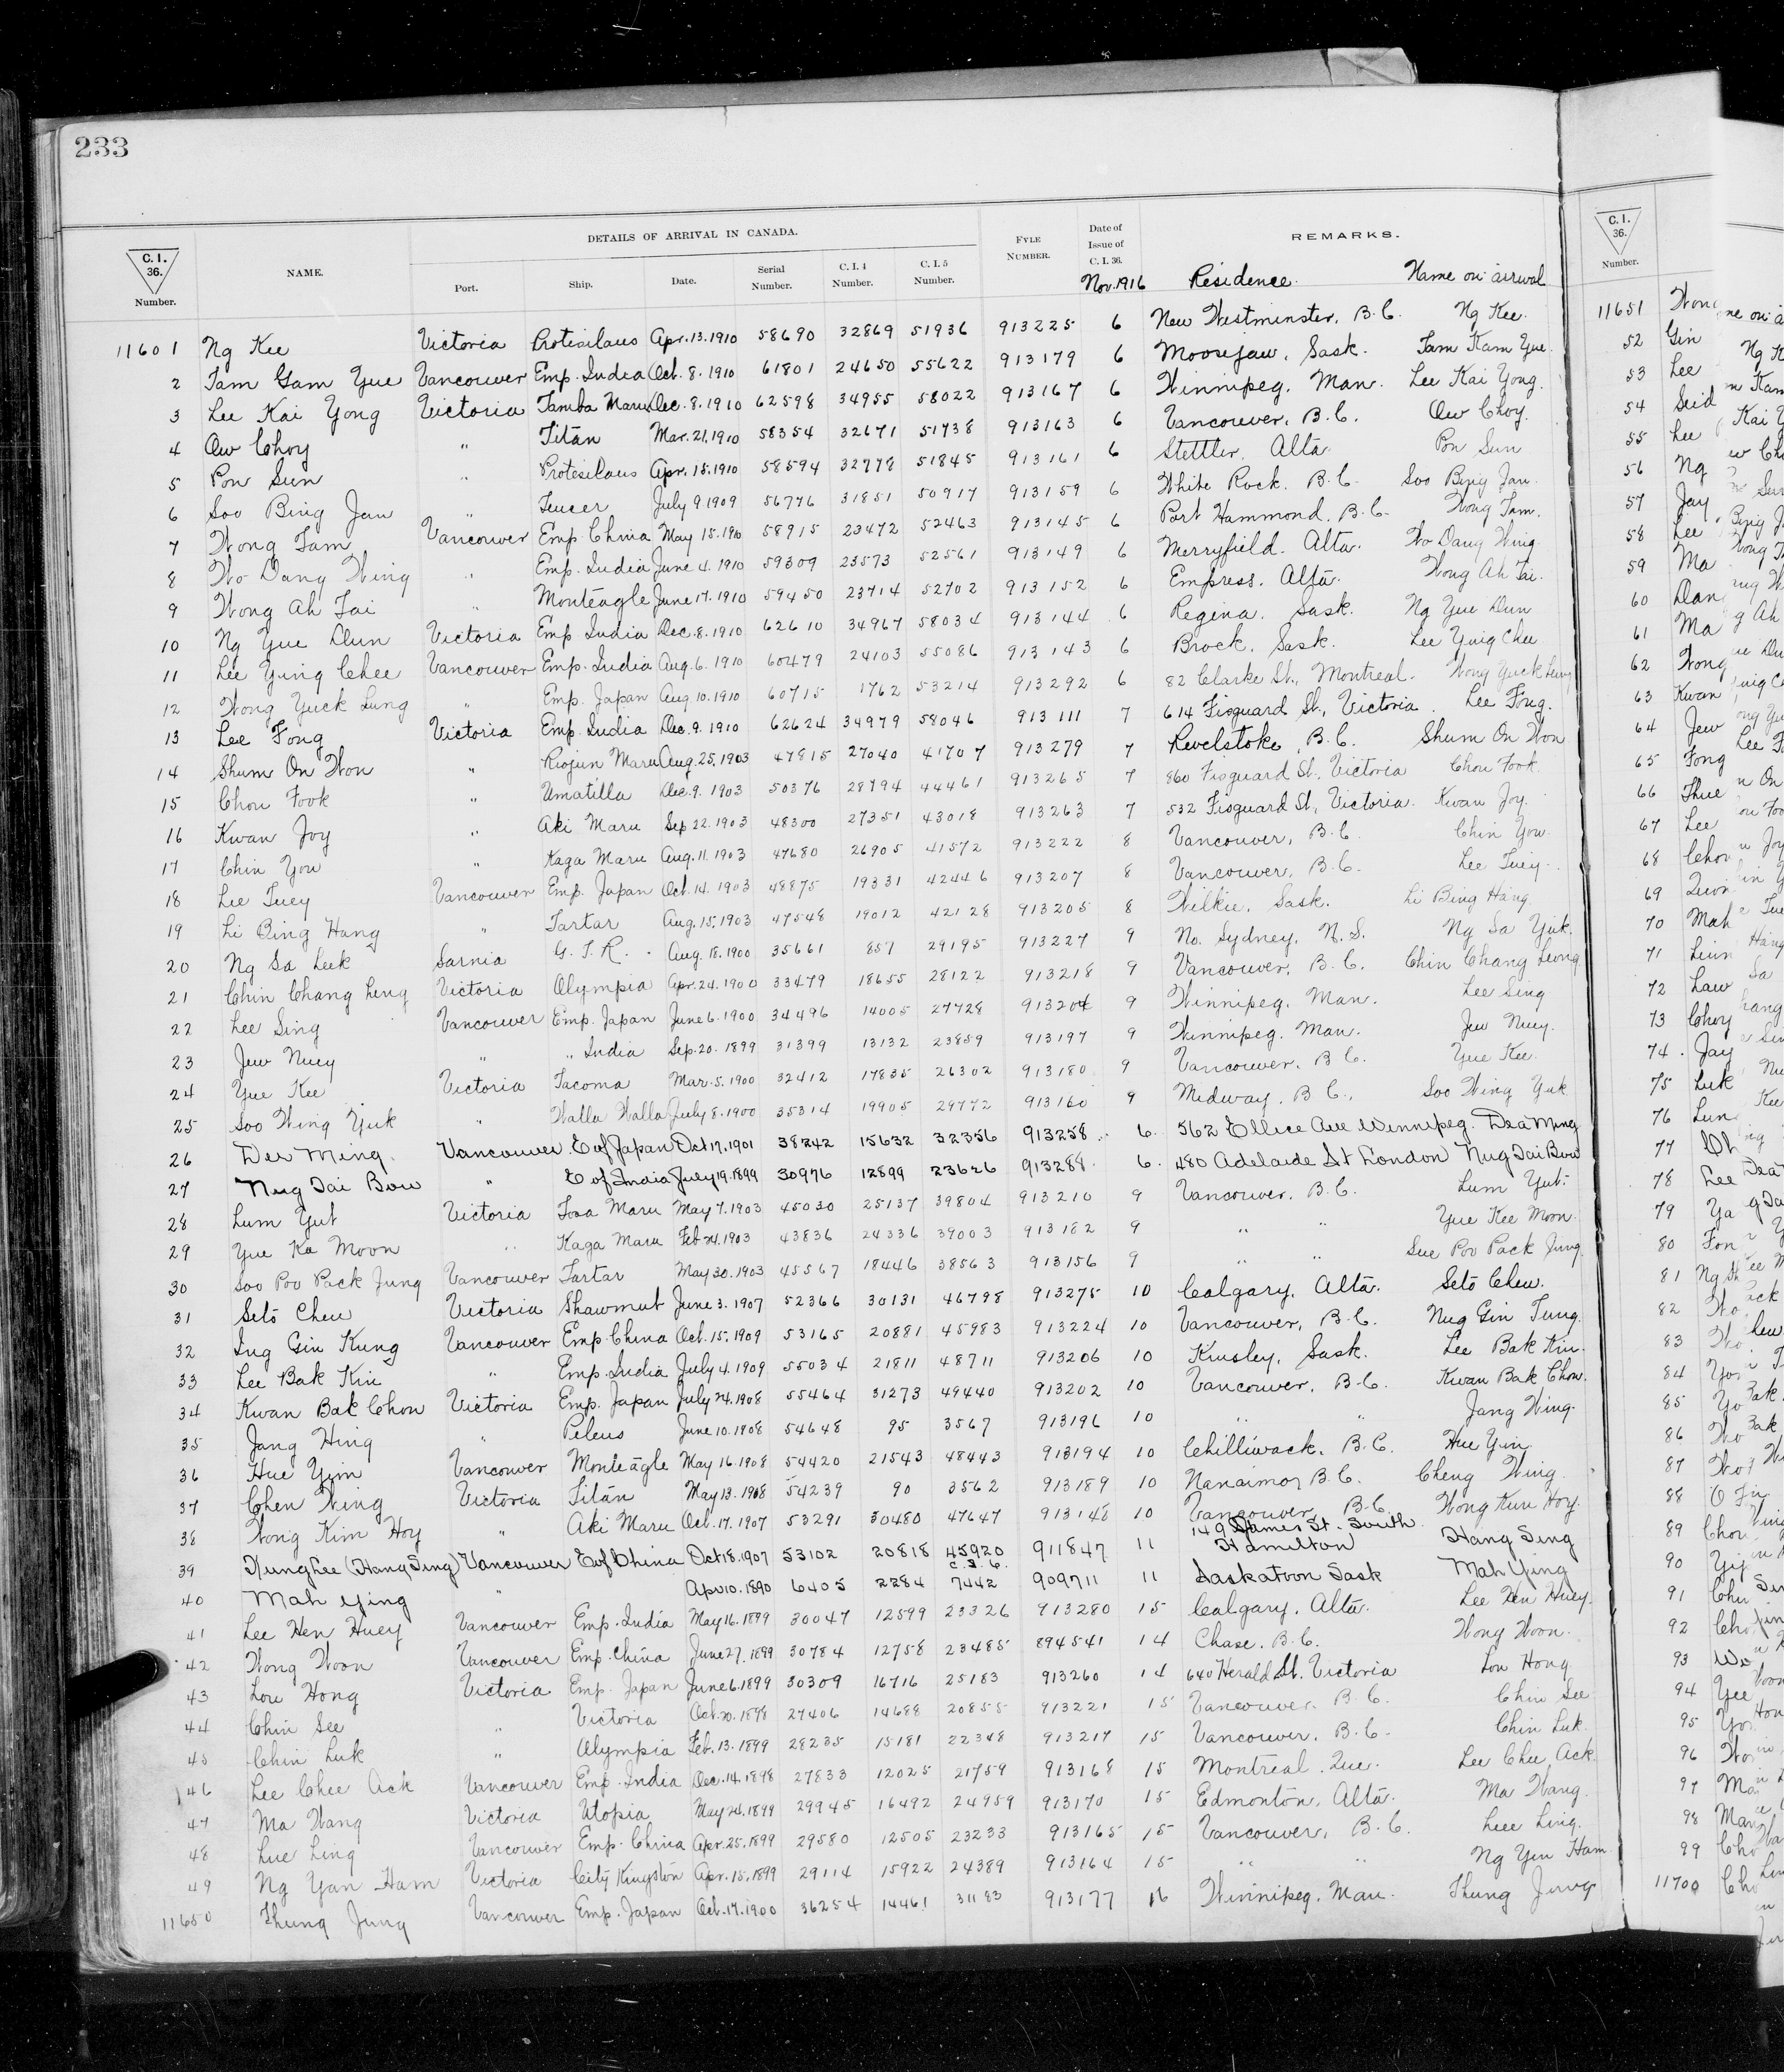 233
DETAILS OF ARRIVAL IN CANADA.
C. I. 36. Number. NAME. Port. Ship. Date. Serial Number. C. I. 4 Number. C. I. 5 Number. FYLE NUMBER. Date of Issue of C. I. 36. REMARKS.
Nov. 1916 Residence. Name on arrival
11601 Ng Kee Victoria Protesilaus Apr. 13. 1910 58690 32869 51936 913225 6 New Westminster, B.C. Ng Kee.
2 Tam Gam Yue Vancouver Emp. India Oct. 8. 1910 61801 24650 55622 913179 6 Moosejaw, Sask. Tam Kam Yue.
3 Lee Kai Yong Victoria Tamba Maru Dec. 8. 1910 62598 34955 58022 913167 6 Winnipeg, Man. Lee Kai Yong.
4 Ow Choy " Titan Mar. 21. 1910 58354 32671 51738 913163 6 Vancouver, B.C. Ow Choy.
5 Pon Sun " Protesilaus Apr. 15. 1910 58594 32778 51845 913161 6 Stettler, Alta. Pon Sun
6 Soo Bing Jan " Teucer July 9 1909 56776 31851 50917 913159 6 White Rock. B.C. Soo Bing Jan.
7 Wong Tam Vancouver Emp. China May 15. 1910 58915 23472 52463 913145 6 Port Hammond. B.C. Wong Tam.
8 Wo Dang Wing " Emp. India June 4. 1910 59309 23573 52561 913149 6 Merryfield. Alta. Wo Dang Wing
9 Wong Ah Tai " Monteagle June 17. 1910 59450 23714 52702 913152 6 Empress. Alta. Wong Ah Tai.
10 Ng Yue Dun Victoria Emp. India Dec. 8. 1910 62610 34967 58034 913144 6 Regina. Sask. Ng Yue Dun
11 Lee Ying Chee Vancouver Emp. India Aug. 6. 1910 60479 24103 55086 913143 6 Brock. Sask. Lee Ying Chee
12 Wong Yuck Lung " Emp. Japan Aug. 10. 1910 60715 1762 53214 913292 6 82 Clarke St., Montreal. Wong Yuck Leung
13 Lee Fong Victoria Emp. India Dec. 9. 1910 62624 34979 58046 913111 7 614 Fisguard St., Victoria. Lee Fong.
14 Shum On Won " Riojun Maru Aug. 25. 1903 47815 27040 41707 913279 7 Revelstoke, B.C. Shum On Won
15 Chou Fook " Umatilla Dec. 9. 1903 50376 28794 44461 913265 7 860 Fisguard St., Victoria Chou Fook.
16 Kwan Joy " Aki Maru Sep. 22. 1903 48300 27351 43018 913263 7 532 Fisguard St., Victoria. Kwan Joy.
17 Chin You " Kaga Maru Aug. 11. 1903 47680 26905 41572 913222 8 Vancouver, B.C. Chin You.
18 Lee Tuey Vancouver Emp. Japan Oct. 14. 1903 48875 19331 42446 913207 8 Vancouver, B.C. Lee Tuey.
19 Li Bing Hang " Tartar Aug. 15. 1903 47548 19012 42128 913205 8 Wilkie. Sask. Li Bing Hang.
20 Ng Sa Luk Sarnia G. T. R. Aug. 18. 1900 35661 857 29195 913227 9 No. Sydney, N.S. Ng Sa Yuk.
21 Chin Chang Leng Victoria Olympia Apr. 24. 1900 33479 18655 28122 913218 9 Vancouver, B.C. Chin Chang Leong
22 Lee Sing Vancouver Emp. Japan June 6. 1900 34496 14005 27728 913204 9 Winnipeg. Man. Lee Sing
23 Jew Nuey " " India Sep. 20. 1899 31399 13132 23859 913197 9 Winnipeg. Man. Jew Nuey.
24 Yue Kee Victoria Tacoma Mar. 5. 1900 32412 17835 26302 913180 9 Vancouver, B.C. Yue Kee.
25 Soo Wing Yuk " Walla Walla July 8. 1900 35314 19905 29772 913160 9 Midway. B.C. Soo Wing Yuk
26 Der Ming. Vancouver E of Japan Oct 17. 1901 38242 15632 32356 913258 6. 562 Ellice Ave Winnipeg. Dea Ming
27 Nug Dai Bow " E of India July 19. 1899 30976 12899 23626 913288 6. 480 Adelaide St London Nug Dai Bow
28 Lum Yut Victoria Tosa Maru May 7. 1903 45030 25137 39804 913210 9 Vancouver. B.C. Lum Yut.
29 Yue Ka Moon " Kaga Maru Feb. 24. 1903 43836 24336 39003 913182 9 " " Yue Kee Moon.
30 Soo Poo Pack Jung Vancouver Tartar May 30. 1903 45567 18446 38563 913156 9 " " Sue Poo Pack Jung
31 Seto Chew Victoria Shawmut June 3. 1907 52366 30131 46798 913275 10 Calgary, Alta. Seto Chew.
32 Ing Gin Kung Vancouver Emp. China Oct. 15. 1909 53165 20881 45983 913224 10 Vancouver, B.C. Nug Gin Tung.
33 Lee Bak Kin " Emp. India July 4. 1909 55034 21811 48711 913206 10 Kinsley, Sask. Lee Bak Kin.
34 Kwan Bak Chow Victoria Emp. Japan July 24. 1908 55464 31273 49440 913202 10 Vancouver, B.C. Kwan Bak Chow.
35 Jang Hing " Peleus June 10. 1908 54648 95 3567 913196 10 " " Jang Wing.
36 Hue Yim Vancouver Monteagle May 16. 1908 54420 21543 48443 913194 10 Chilliwack. B.C. Hue Yim
37 Chen Wing Victoria Titan May 13. 1908 54239 90 3562 913189 10 Nanaimo, B.C. Cheng Wing.
38 Wong Kim Hoy " Aki Maru Oct. 17. 1907 53291 30480 47647 913148 10 Vancouver, B.C. Wong Kun Hoy.
39 Hung Lee (Hang Sing) Vancouver E of China Oct 18. 1907 53102 20818 45920 911847 11 149 James St. South Hamilton Hang Sing
40 Mah Ying " Apr 10. 1890 6405 2284 C.I.6. 7442 909711 11 Saskatoon Sask Mah Ying
41 Lee Hen Huey Vancouver Emp. India May 16. 1899 30047 12599 23326 913280 15 Calgary, Alta. Lee Hen Huey.
42 Wong Woon Vancouver Emp. China June 27. 1899 30784 12758 23485 894541 14 Chase. B.C. Wong Woon.
43 Lou Hong Victoria Emp. Japan June 6. 1899 30309 16716 25183 913260 14 640 Herald St. Victoria Lou Hong
44 Chin See " Victoria Oct. 20. 1898 27406 14688 20855 913221 15 Vancouver. B.C. Chin See
45 Chin Luk " Olympia Feb. 13. 1899 28235 15181 22348 913217 15 Vancouver, B.C. Chin Luk.
46 Lee Chee Ack Vancouver Emp. India Dec. 14. 1898 27833 12025 21759 913168 15 Montreal. Que. Lee Chee Ack.
47 Ma Wang Victoria Utopia May 24. 1899 29945 16492 24959 913170 15 Edmonton, Alta. Ma Wang.
48 Lue Ling Vancouver Emp. China Apr. 25. 1899 29580 12505 23233 913165 15 Vancouver, B.C. Luee Ling.
49 Ng Yan Ham Victoria City Kingston Apr. 15. 1899 29114 15922 24389 913164 15 " " Ng Yen Ham
11650 Thung Jung Vancouver Emp. Japan Oct. 17. 1900 36254 14461 31183 913177 16 Winnipeg. Man. Thung Jung
C. I. 36. Number.
11651 Wong
52 Gin
53 Lee
54 Seid
55 Lee
56 Ng
57 Jay
58 Lee
59 Ma
60 Dan
61 Ma
62 Wong
63 Kwan
64 Jew
65 Fong
66 Thue
67 Lee
68 Chou
69 Quon
70 Mah
71 Leun
72 Law
73 Choy
74 Jay
75 Luk
76 Lun
77 Ch
78 Lee
79 Ya
80 Fon
81 Ng
82 Wo
83 Wo
84 Yo
85 Yo
86 Wo
87 Wo
88
89 Chou
90 Yi
91 Chu
92 Cho
93 Wo
94 Yee
95 Yo
96 Wo
97 Ma
98 Man
99 Cho
11700 Cho